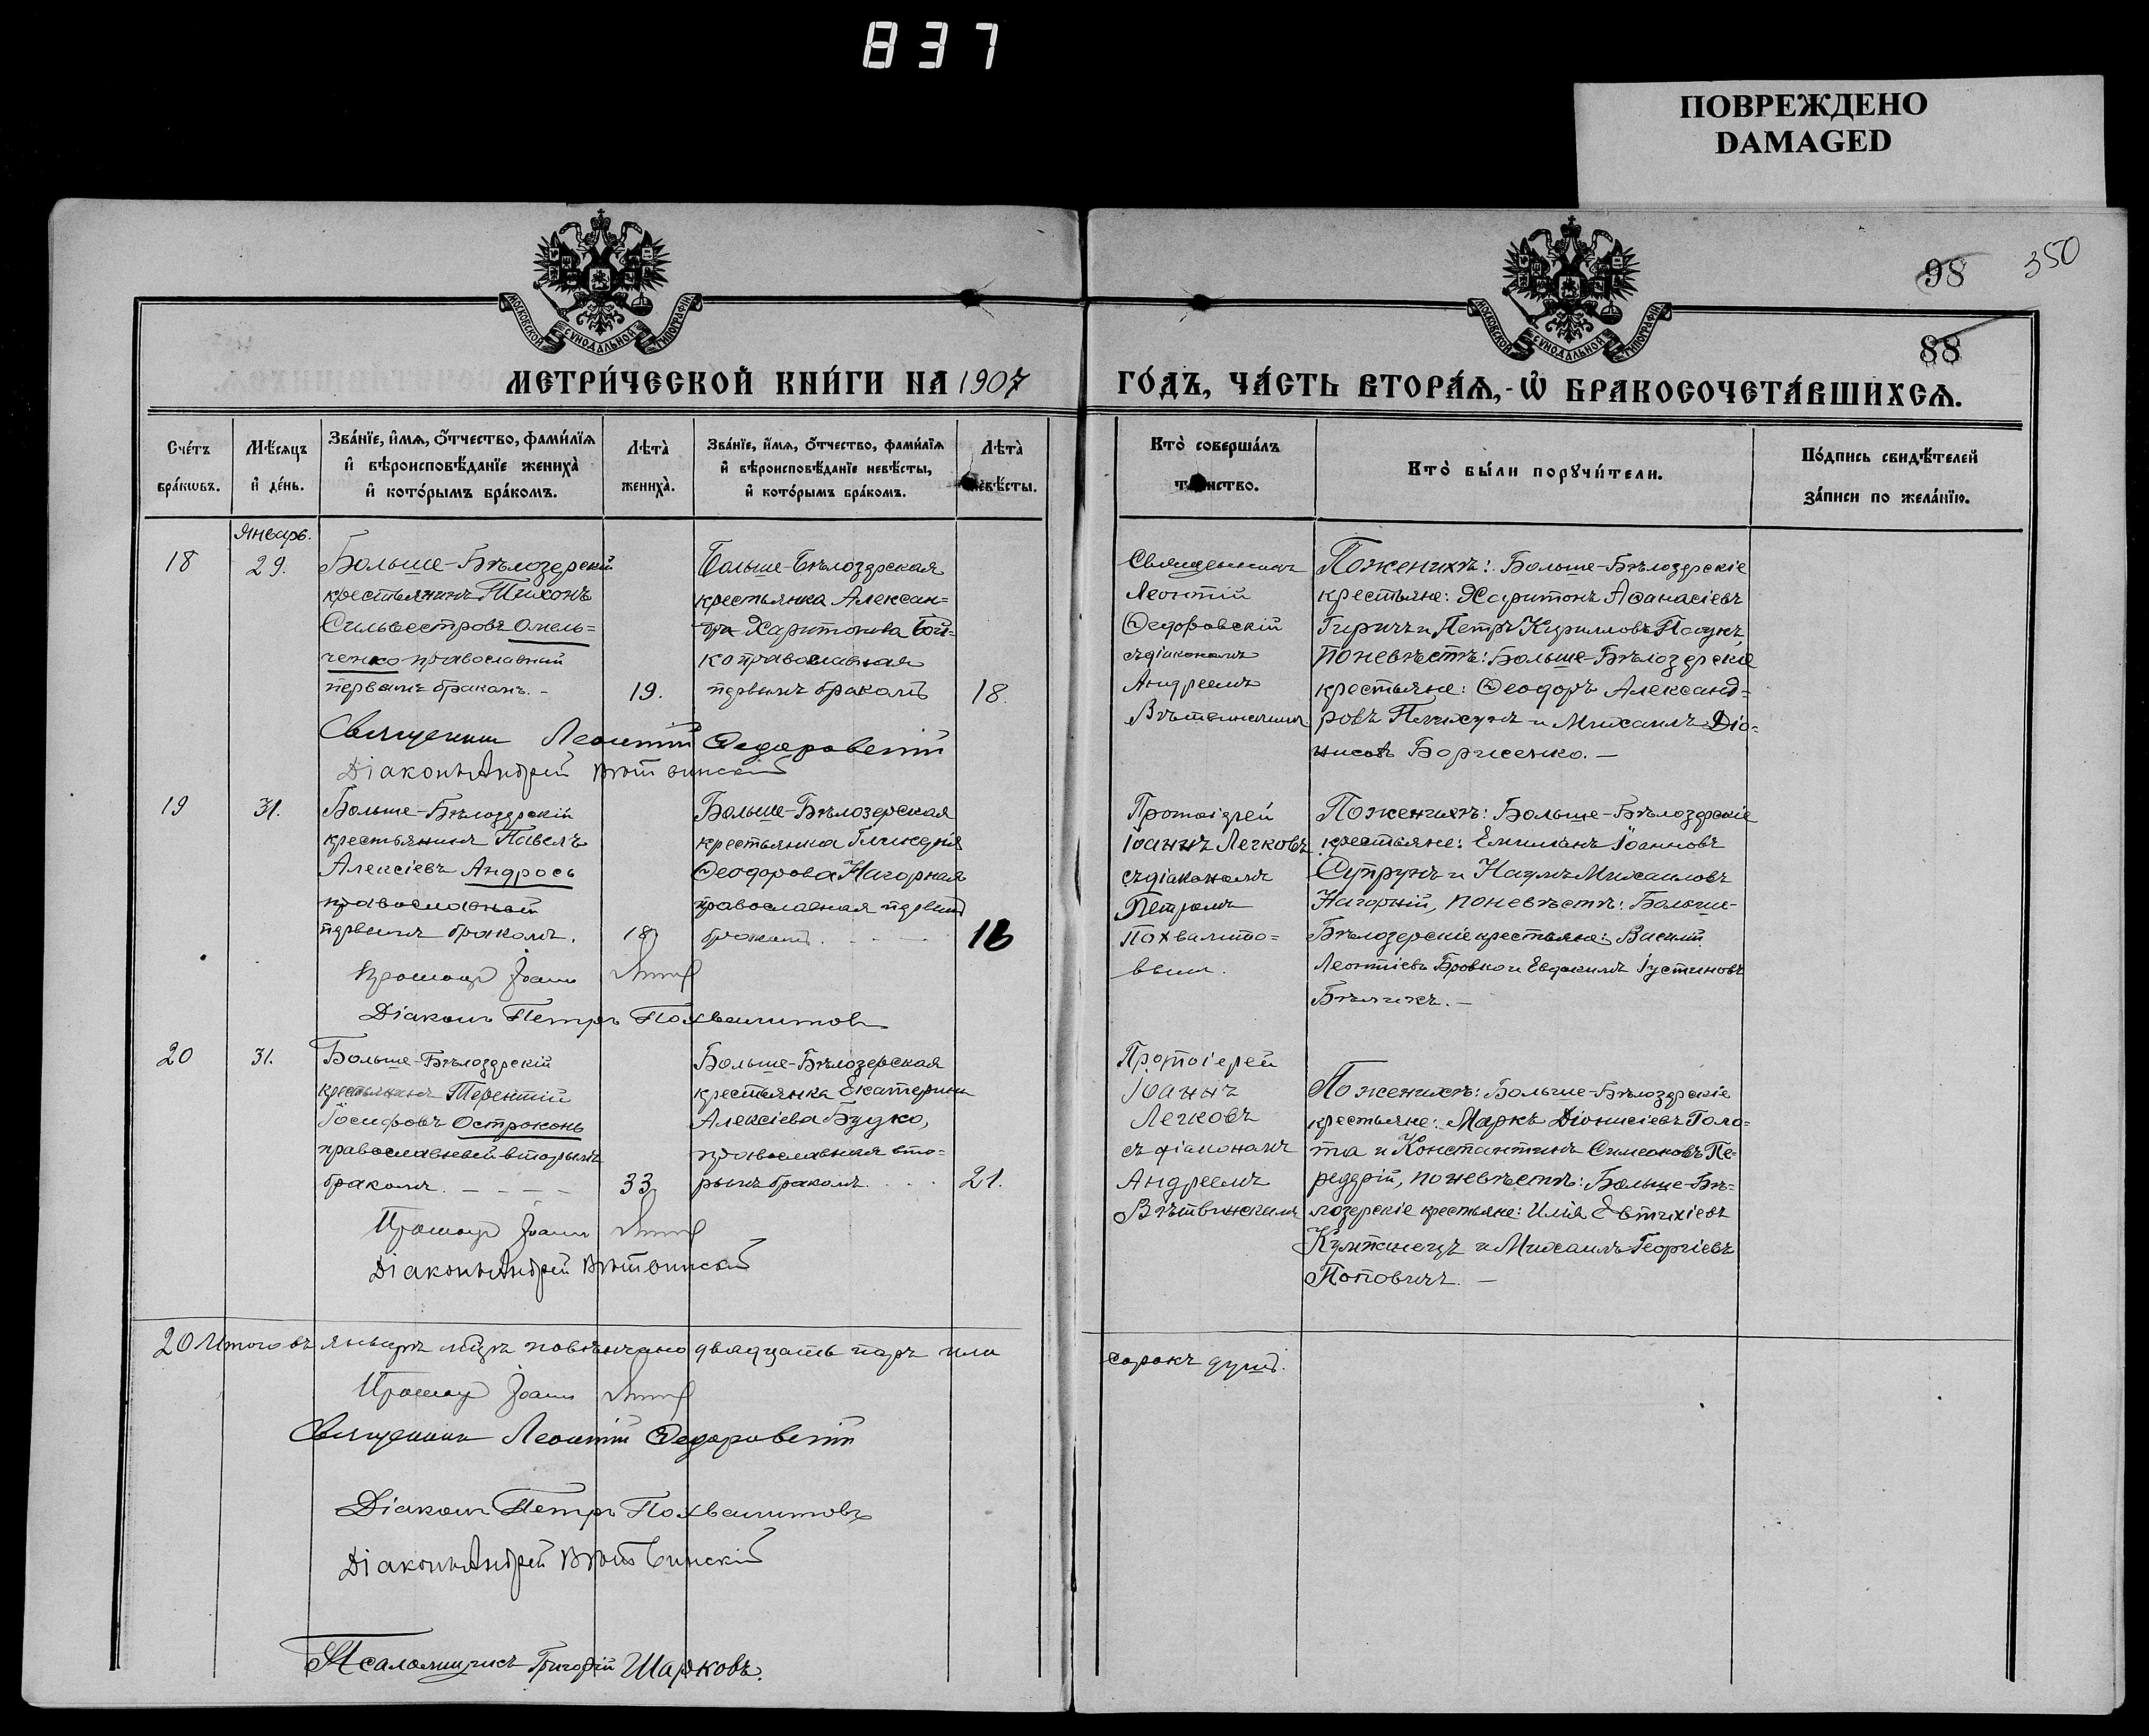 837
ПОВРЕЖДЕНО
DAMAGED
98 350
88
МОСКОВСКОЙ СУНОДАЛЬНОЙ ТИПОГРАФІИ
МОСКОВСКОЙ СУНОДАЛЬНОЙ ТИПОГРАФІИ
МЕТРИ́ЧЕСКОЙ КНИ́ГИ НА 1907 ГО́ДЪ, ЧА́СТЬ ВТОРА́Ѧ,-Ѡ БРАКОСОЧЕТА́ВШИХСѦ.
Сче́тъ
бра́кωвъ.
Мѣ́сѧцъ
и҆ де́нь.
Зва́нїе, и҆́мѧ, ѻ҆́тчество, фами́лїѧ
и҆ вѣроисповѣ́данїе жениха̀
и҆ кото́рымъ бра́комъ.
Лѣ́та̀
жениха̀.
Зва́нїе, и҆́мѧ, ѻ҆́тчество, фами́лїѧ
и҆ вѣроисповѣ́данїе невѣ́сты,
и҆ кото́рымъ бра́комъ.
Лѣ́та̀
невѣ́сты.
Кто̀ соверша́лъ
таинство.
Кто̀ бы́ли порꙋчи́тели.
По́дпись свидѣ́телей
за́писи по жела́нїю.
Январь.
18
29.
Больше-Бѣлозерскій
крестьянинъ Тихонъ
Сильвестровъ Омель=
ченко православный
первымъ бракомъ. -
19.
Больше-Бѣлозерская
крестьянка Алексан=
дра Харитонова Бой-
ко православная
первымъ бракомъ
18.
Священникъ
Леонтій
Ѳедоровскій
съ діакономъ
Андреемъ
Вѣтвинскимъ
По женихѣ: Больше-Бѣлозерскіе
крестьяне: Харитонъ Аѳанасіевъ
Гиричъ и Петръ Кирилловъ Паукъ,
по невѣстѣ: Больше-Бѣлозерскіе
крестьяне: Ѳеодоръ Александ=
ровъ Пикунъ и Михаилъ Діо-
нисовъ Борисенко. —
Священникъ Леонтій Ѳедоровскій
Діаконъ Андрей Вѣтвинскій
19
31.
Больше-Бѣлозерскій
крестьянинъ Павелъ
Алексіевъ Андрось
православный
первымъ бракомъ.
18
Больше-Бѣлозерская
крестьянка Гликерія
Ѳеодорова Нагорная
православная первымъ
бракомъ.
16
Протоіерей
Іоаннъ Легковъ
съ діакономъ
Петромъ
Похвалито=
вымъ.
По женихѣ: Больше-Бѣлозерскіе
крестьяне: Емиліанъ Іоанновъ
Супрунъ и Наумъ Михаиловъ
Нагорный, по невѣстѣ: Больше-
Бѣлозерскіе крестьяне: Василій
Леонтіевъ Бровко и Евдокимъ Іустиновъ
Бѣликъ. —
Протоіер Іоаннъ
Діаконъ Петръ Похвалитовъ
20
31.
Больше-Бѣлозерскій
крестьянинъ Терентій
Іосифовъ Остроконь
православный вторымъ
бракомъ. — — — —
33.
Больше-Бѣлозерская
крестьянка Екатерина
Алексіева Буцко,
православная вто-
рымъ бракомъ.
21.
Протоіерей
Іоаннъ
Легковъ
съ діакономъ
Андреемъ
Вѣтвинскимъ
По женихѣ: Больше-Бѣлозерскіе
крестьяне: Маркъ Діонисіевъ Голо=
та и Константинъ Симеоновъ Пе-
редерій, по невѣстѣ: Больше-Бѣ=
лозерскіе крестьяне: Илія Евтихіевъ
и Михаилъ Георгіевъ
Поповичъ. —
Протоіер Іоаннъ
Діаконъ Андрей Вѣтвинскій
20 Итого въ январѣ мѣцѣ повѣнчано двадцать паръ или сорокъ душъ.
Протоіер Іоаннъ
Священникъ Леонтій Ѳедоровскій
Діаконъ Петръ Похвалитовъ
Діаконъ Андрей Вѣтвинскій
Псаломщикъ Григорій Шарковъ.